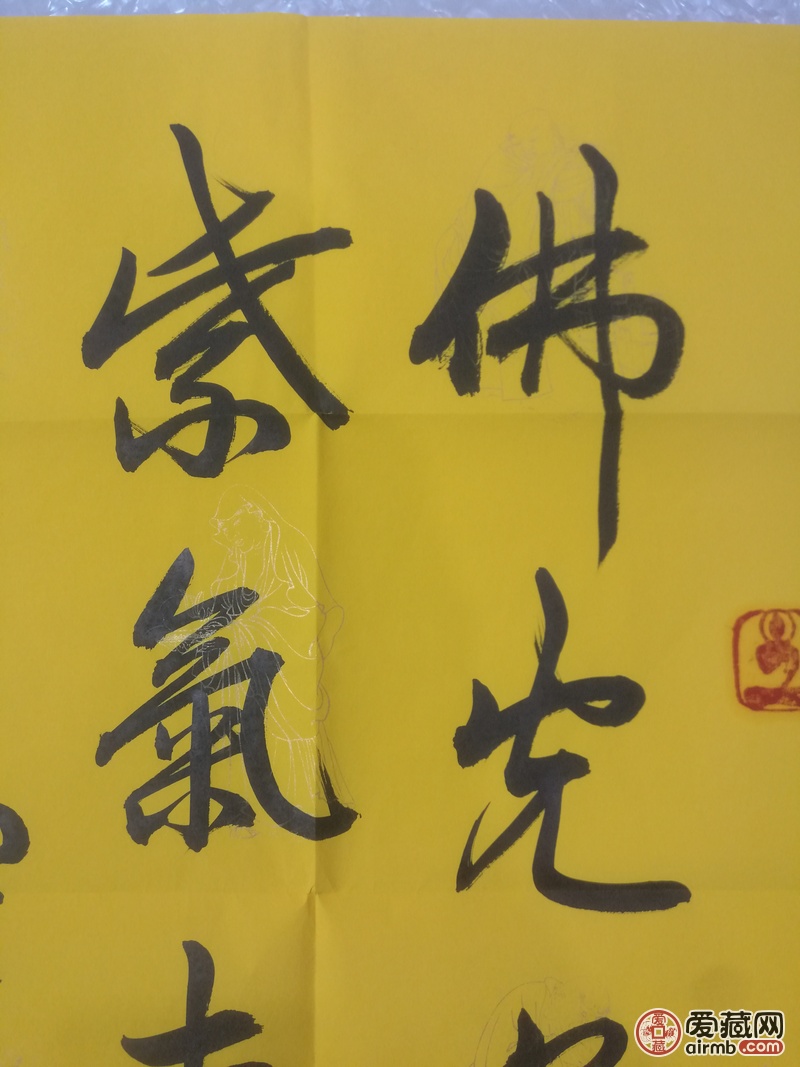 佛光
紫氣
爱藏网
airmb.com